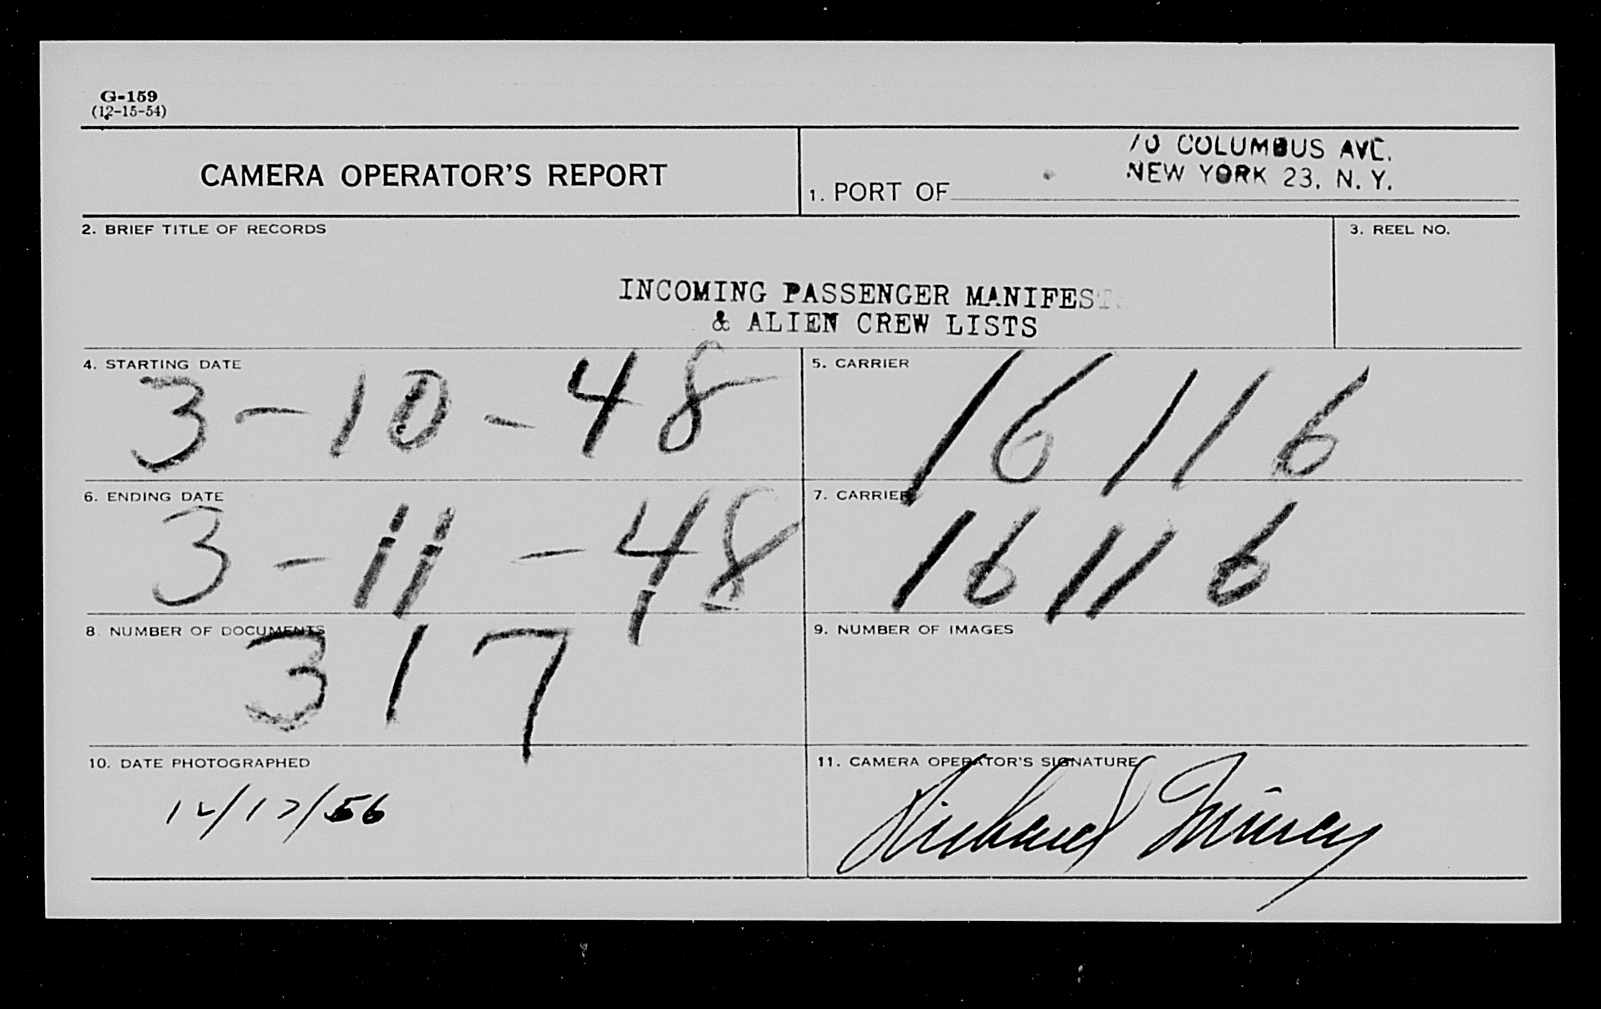 G-159
(12-15-54)
CAMERA OPERATOR'S REPORT
70 COLUMBUS AVE.
NEW YORK 23, N.Y.
1. PORT OF
2. BRIEF TITLE OF RECORDS
3. REEL NO.
INCOMING PASSENGER MANIFESTS
& ALIEN CREW LISTS
4. STARTING DATE
3-10-48
5. CARRIER
16116
6. ENDING DATE
3-11-48
7. CARRIER
16116
8. NUMBER OF DOCUMENTS
317
9. NUMBER OF IMAGES
10. DATE PHOTOGRAPHED
12/17/56
11. CAMERA OPERATOR'S SIGNATURE
Richard